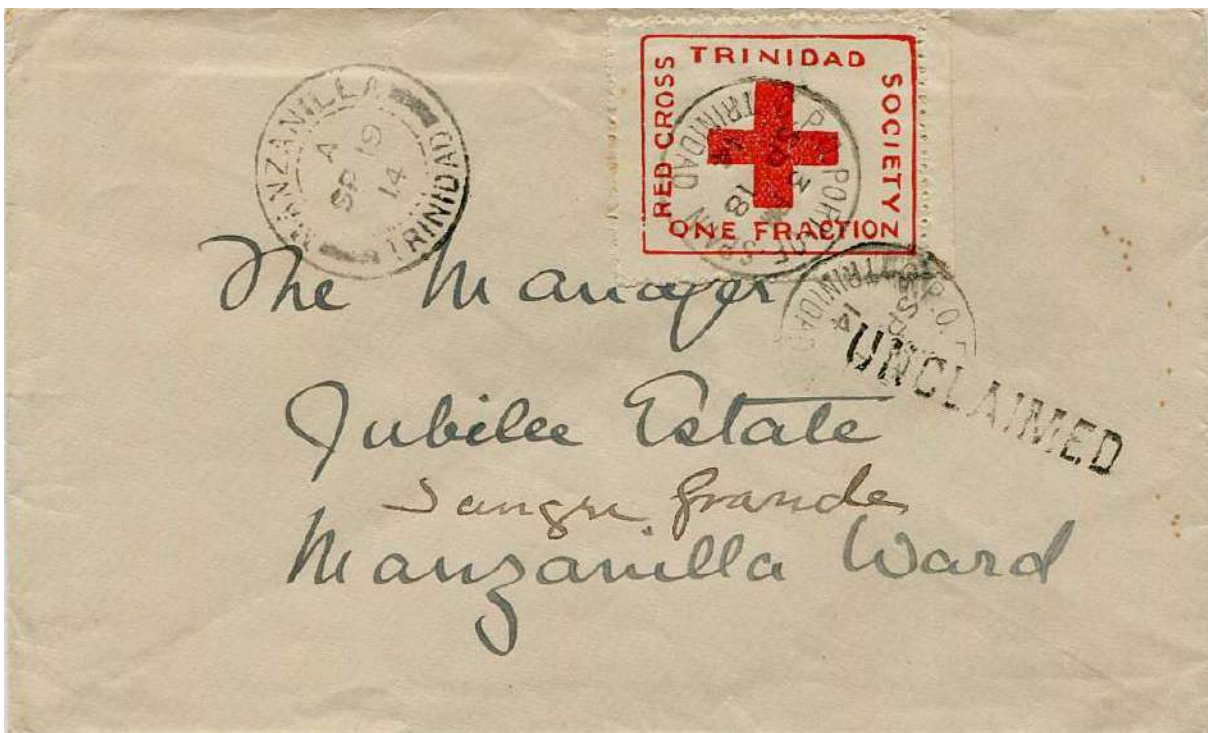 MANZANILLA
A
SP 19
14
TRINIDAD
TRINIDAD
RED CROSS
SOCIETY
ONE FRACTION
PORT OF SPAIN
TRINIDAD
18
G.P.O.
TRINIDAD
SP
14
UNCLAIMED
The Manager
Jubilee Estate
Sangre Grande
Manzanilla Ward